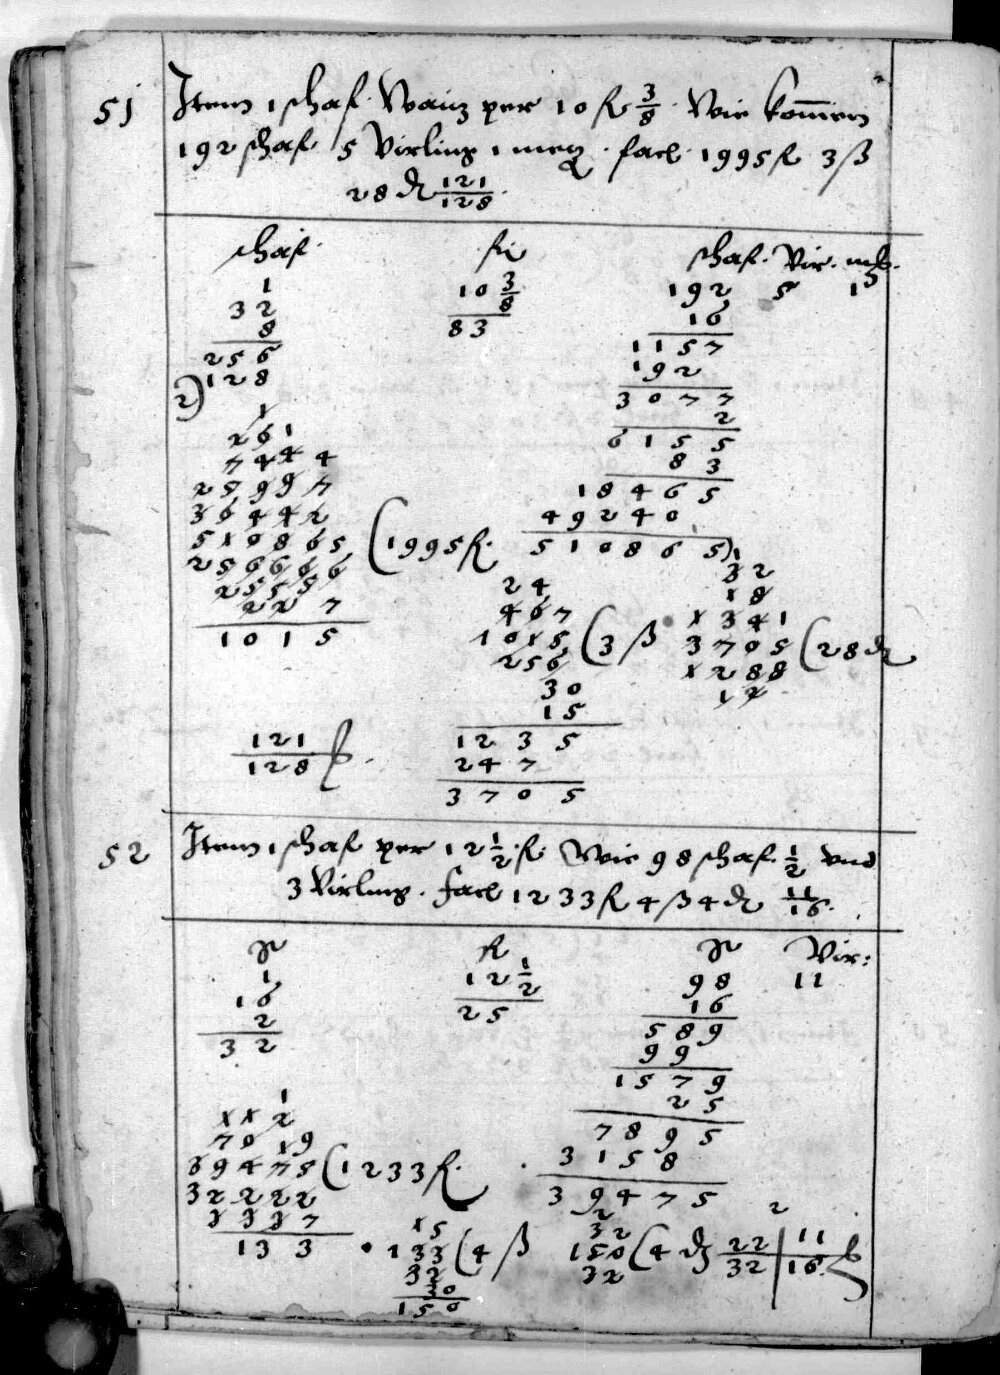 51 Item 1 schaf Waiz per 10 fl 3/8. Wie komen
192 schaf 5 Virling 1 mez. facit 1995 fl 3 ß
28 ₰ 121/128.
schaf. fl schaf. Vir. mz.
1 10 3/8 192 5 1
32 83 16
8 1157
256 192
2) 128 3077
2
6155
83
18465
49240
510865
1
261
7444
25997
36442
510865 (1995 fl.
256666
2555
227
1015
24
467
1015 (3 ß
256
30
15
1235
247
3705
1
32
18
1341
3705 (28 ₰
1288
12
121/128
52 Item 1 schaf per 12 1/2 fl Wie 98 schaf. 1/2 vnd
3 Virling. facit 1233 fl 4 ß 4 ₰ 11/16.
fl Vir:
1 12 1/2 98 11
16 25 16
2 589
32 99
1579
25
7895
3158
39475
1
112
70 19
39475 (1233 fl.
32222
333
133
15
133 (4 ß
32
30
150
2
32
150 (4 ₰ 22/32 | 11/16
32
2